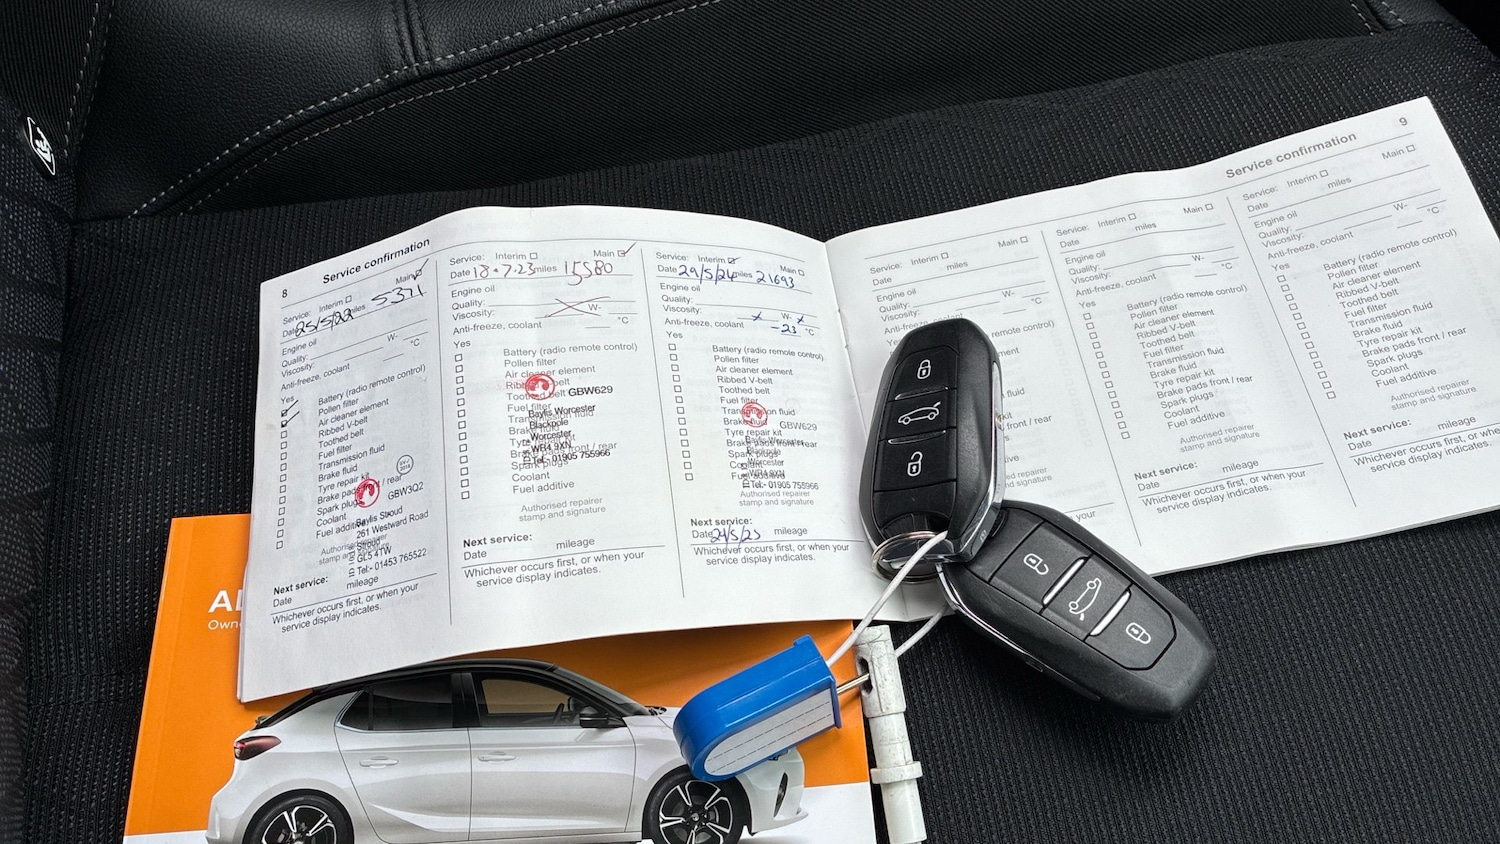 8
Service confirmation
Service: Interim ☐ Main ☑
Date 25/5/22 miles 5371
Engine oil
Quality: W-
Viscosity: °C
Anti-freeze, coolant
Yes
Battery (radio remote control)
Pollen filter
Air cleaner element
Ribbed V-belt
Toothed belt
Fuel filter
Transmission fluid
Brake fluid
Tyre repair kit
Brake pads front / rear
Spark plugs
Coolant
Fuel additive
Authorised repairer
stamp and signature
GBW3Q2
Baylis Stroud
261 Westward Road
Stroud
GL5 4TW
Tel:- 01453 765522
Next service:
Date mileage
Whichever occurs first, or when your
service display indicates.
Service: Interim ☐ Main ☑
Date 18.7.23 miles 15580
Engine oil
Quality: W-
Viscosity: °C
Anti-freeze, coolant
Yes
Battery (radio remote control)
Pollen filter
Air cleaner element
Ribbed V-belt
Toothed belt
Fuel filter
Transmission fluid
Brake fluid
Tyre repair kit
Brake pads front / rear
Spark plugs
Coolant
Fuel additive
GBW629
Baylis Worcester
Blackpole
Worcester
WR4 9XN
Tel:- 01905 755966
Authorised repairer
stamp and signature
Next service:
Date mileage
Whichever occurs first, or when your
service display indicates.
Service: Interim ☑ Main ☐
Date 29/5/24 miles 21693
Engine oil
Quality: W-
Viscosity:
Anti-freeze, coolant -23 °C
Yes
Battery (radio remote control)
Pollen filter
Air cleaner element
Ribbed V-belt
Toothed belt
Fuel filter
Transmission fluid
Brake fluid
Tyre repair kit
Brake pads front / rear
Spark plugs
Coolant
Fuel additive
GBW629
Baylis Worcester
Blackpole
Worcester
WR4 9XN
Tel:- 01905 755966
Authorised repairer
stamp and signature
Next service:
Date mileage
Whichever occurs first, or when your
service display indicates.
Service confirmation
9
Service: Interim ☐ Main ☐
Date miles
Engine oil
Quality: W-
Viscosity: °C
Anti-freeze, coolant
remote control)
fluid
front / rear
repairer
and signature
your
Service: Interim ☐ Main ☐
Date miles
Engine oil
Quality: W-
Viscosity: °C
Anti-freeze, coolant
Yes
Battery (radio remote control)
Pollen filter
Air cleaner element
Ribbed V-belt
Toothed belt
Fuel filter
Transmission fluid
Brake fluid
Tyre repair kit
Brake pads front / rear
Spark plugs
Coolant
Fuel additive
Authorised repairer
stamp and signature
Next service:
Date mileage
Whichever occurs first, or when your
service display indicates.
Service: Interim ☐ Main ☐
Date miles
Engine oil
Quality: W-
Viscosity: °C
Anti-freeze, coolant
Yes
Battery (radio remote control)
Pollen filter
Air cleaner element
Ribbed V-belt
Toothed belt
Fuel filter
Transmission fluid
Brake fluid
Tyre repair kit
Brake pads front / rear
Spark plugs
Coolant
Fuel additive
Authorised repairer
stamp and signature
Next service:
Date mileage
Whichever occurs first, or when
service display indicates.